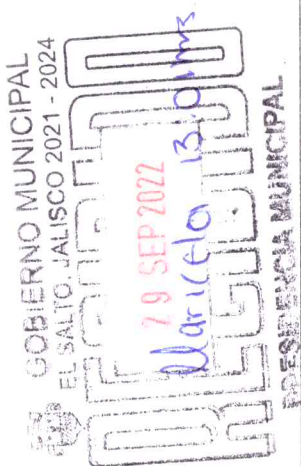 GOBIERNO MUNICIPAL
EL SALTO JALISCO 2021 - 2024
RECIBIDO
29 SEP 2022
Maricela 13:01 hrs
PRESIDENCIA MUNICIPAL